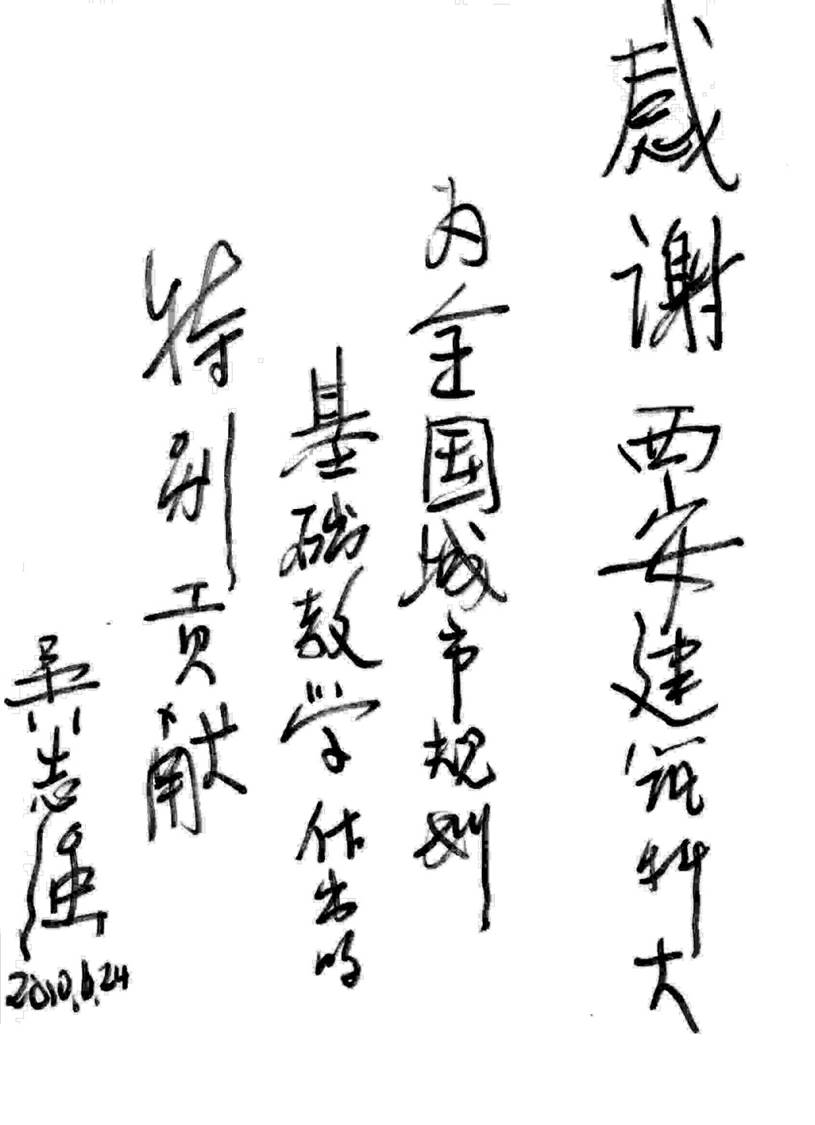 感谢西安建筑科大
为全国城市规划
基础教学作出的
特别贡献
吴志强
2010.6.24